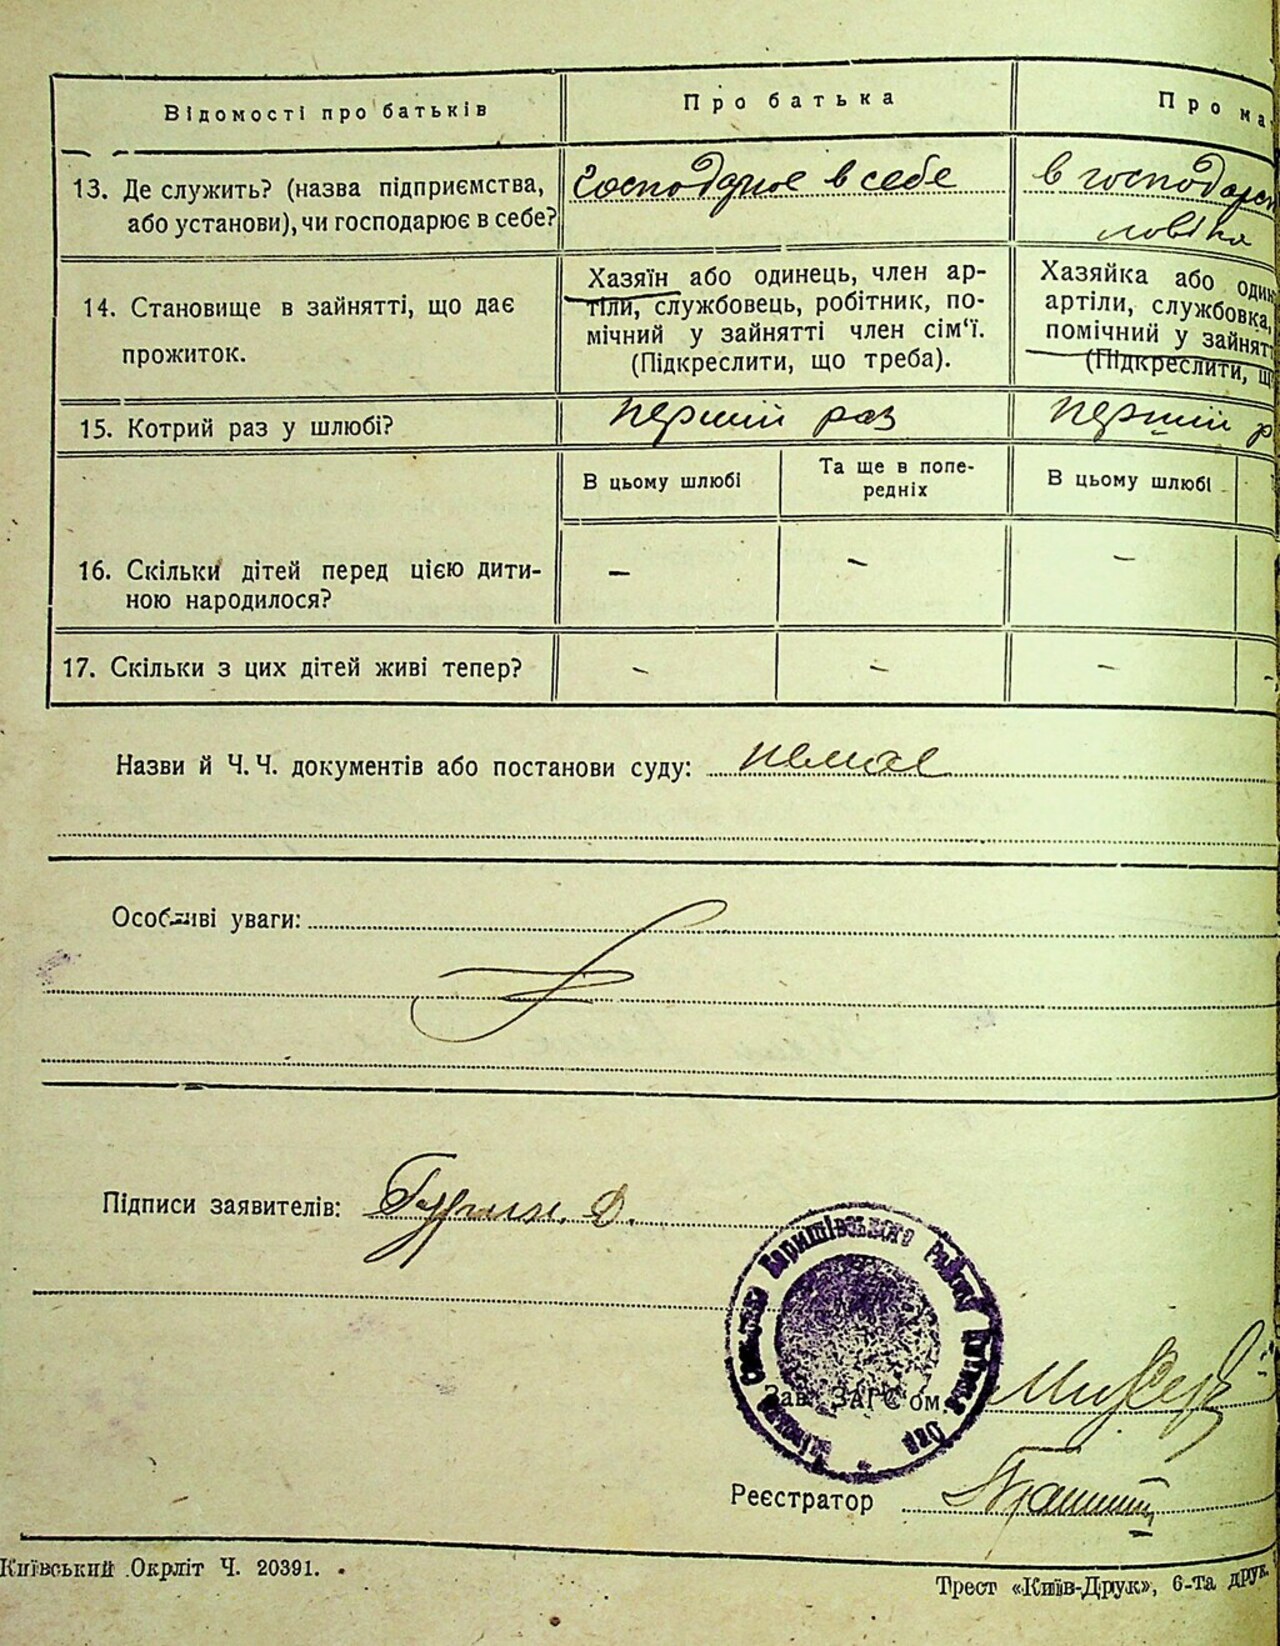 Відомості про батьків
Про батька
Про ма
13. Де служить? (назва підприємства,
або установи), чи господарює в себе?
Господарює в себе
в господарст
ловіка
14. Становище в зайнятті, що дає
прожиток.
Хазяїн або одинець, член ар-
тіли, службовець, робітник, по-
мічний у зайнятті член сім'ї.
(Підкреслити, що треба).
Хазяйка або один
артіли, службовка,
помічний у зайнят
(Підкреслити, щ
15. Котрий раз у шлюбі?
перший раз
перший р
В цьому шлюбі
Та ще в попе-
редніх
В цьому шлюбі
16. Скільки дітей перед цією дити-
ною народилося?
–
–
–
17. Скільки з цих дітей живі тепер?
–
–
–
–
Назви й Ч. Ч. документів або постанови суду: немає
Особливі уваги:
Підписи заявителів:
Д.
Баришівського району
Зав. ЗАГС'ом
Реєстратор
Київський Окрліт Ч. 20391.
Трест «Київ-Друк», 6-та друк.